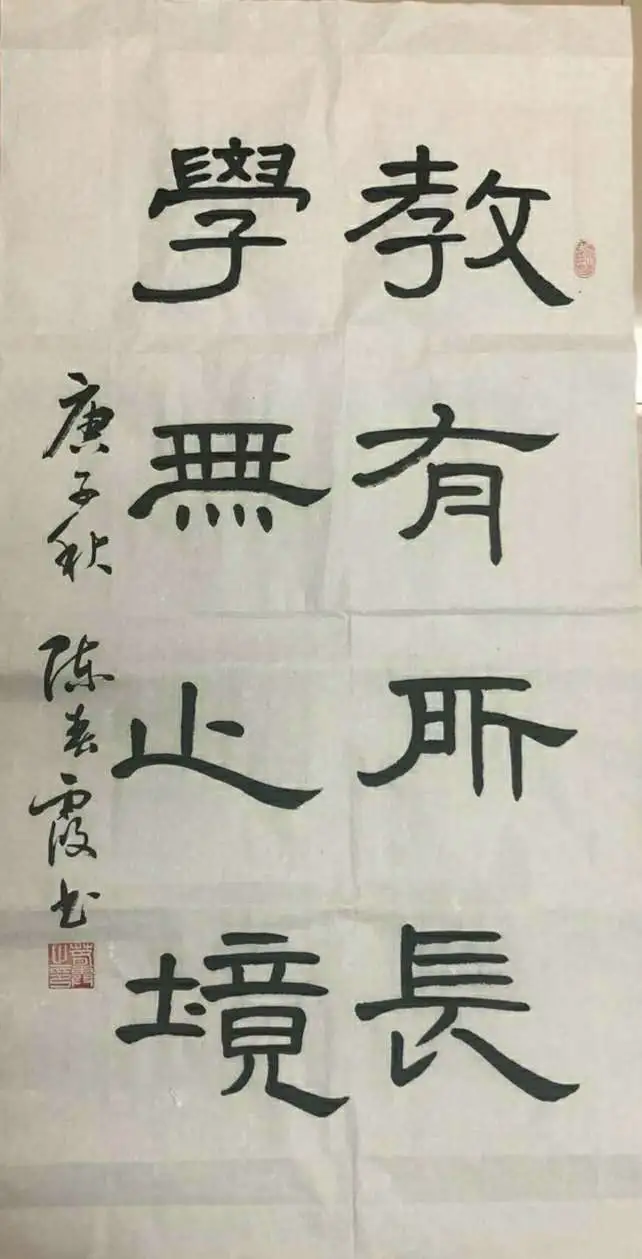 教有所長
學無止境
庚子秋 陈春霞书